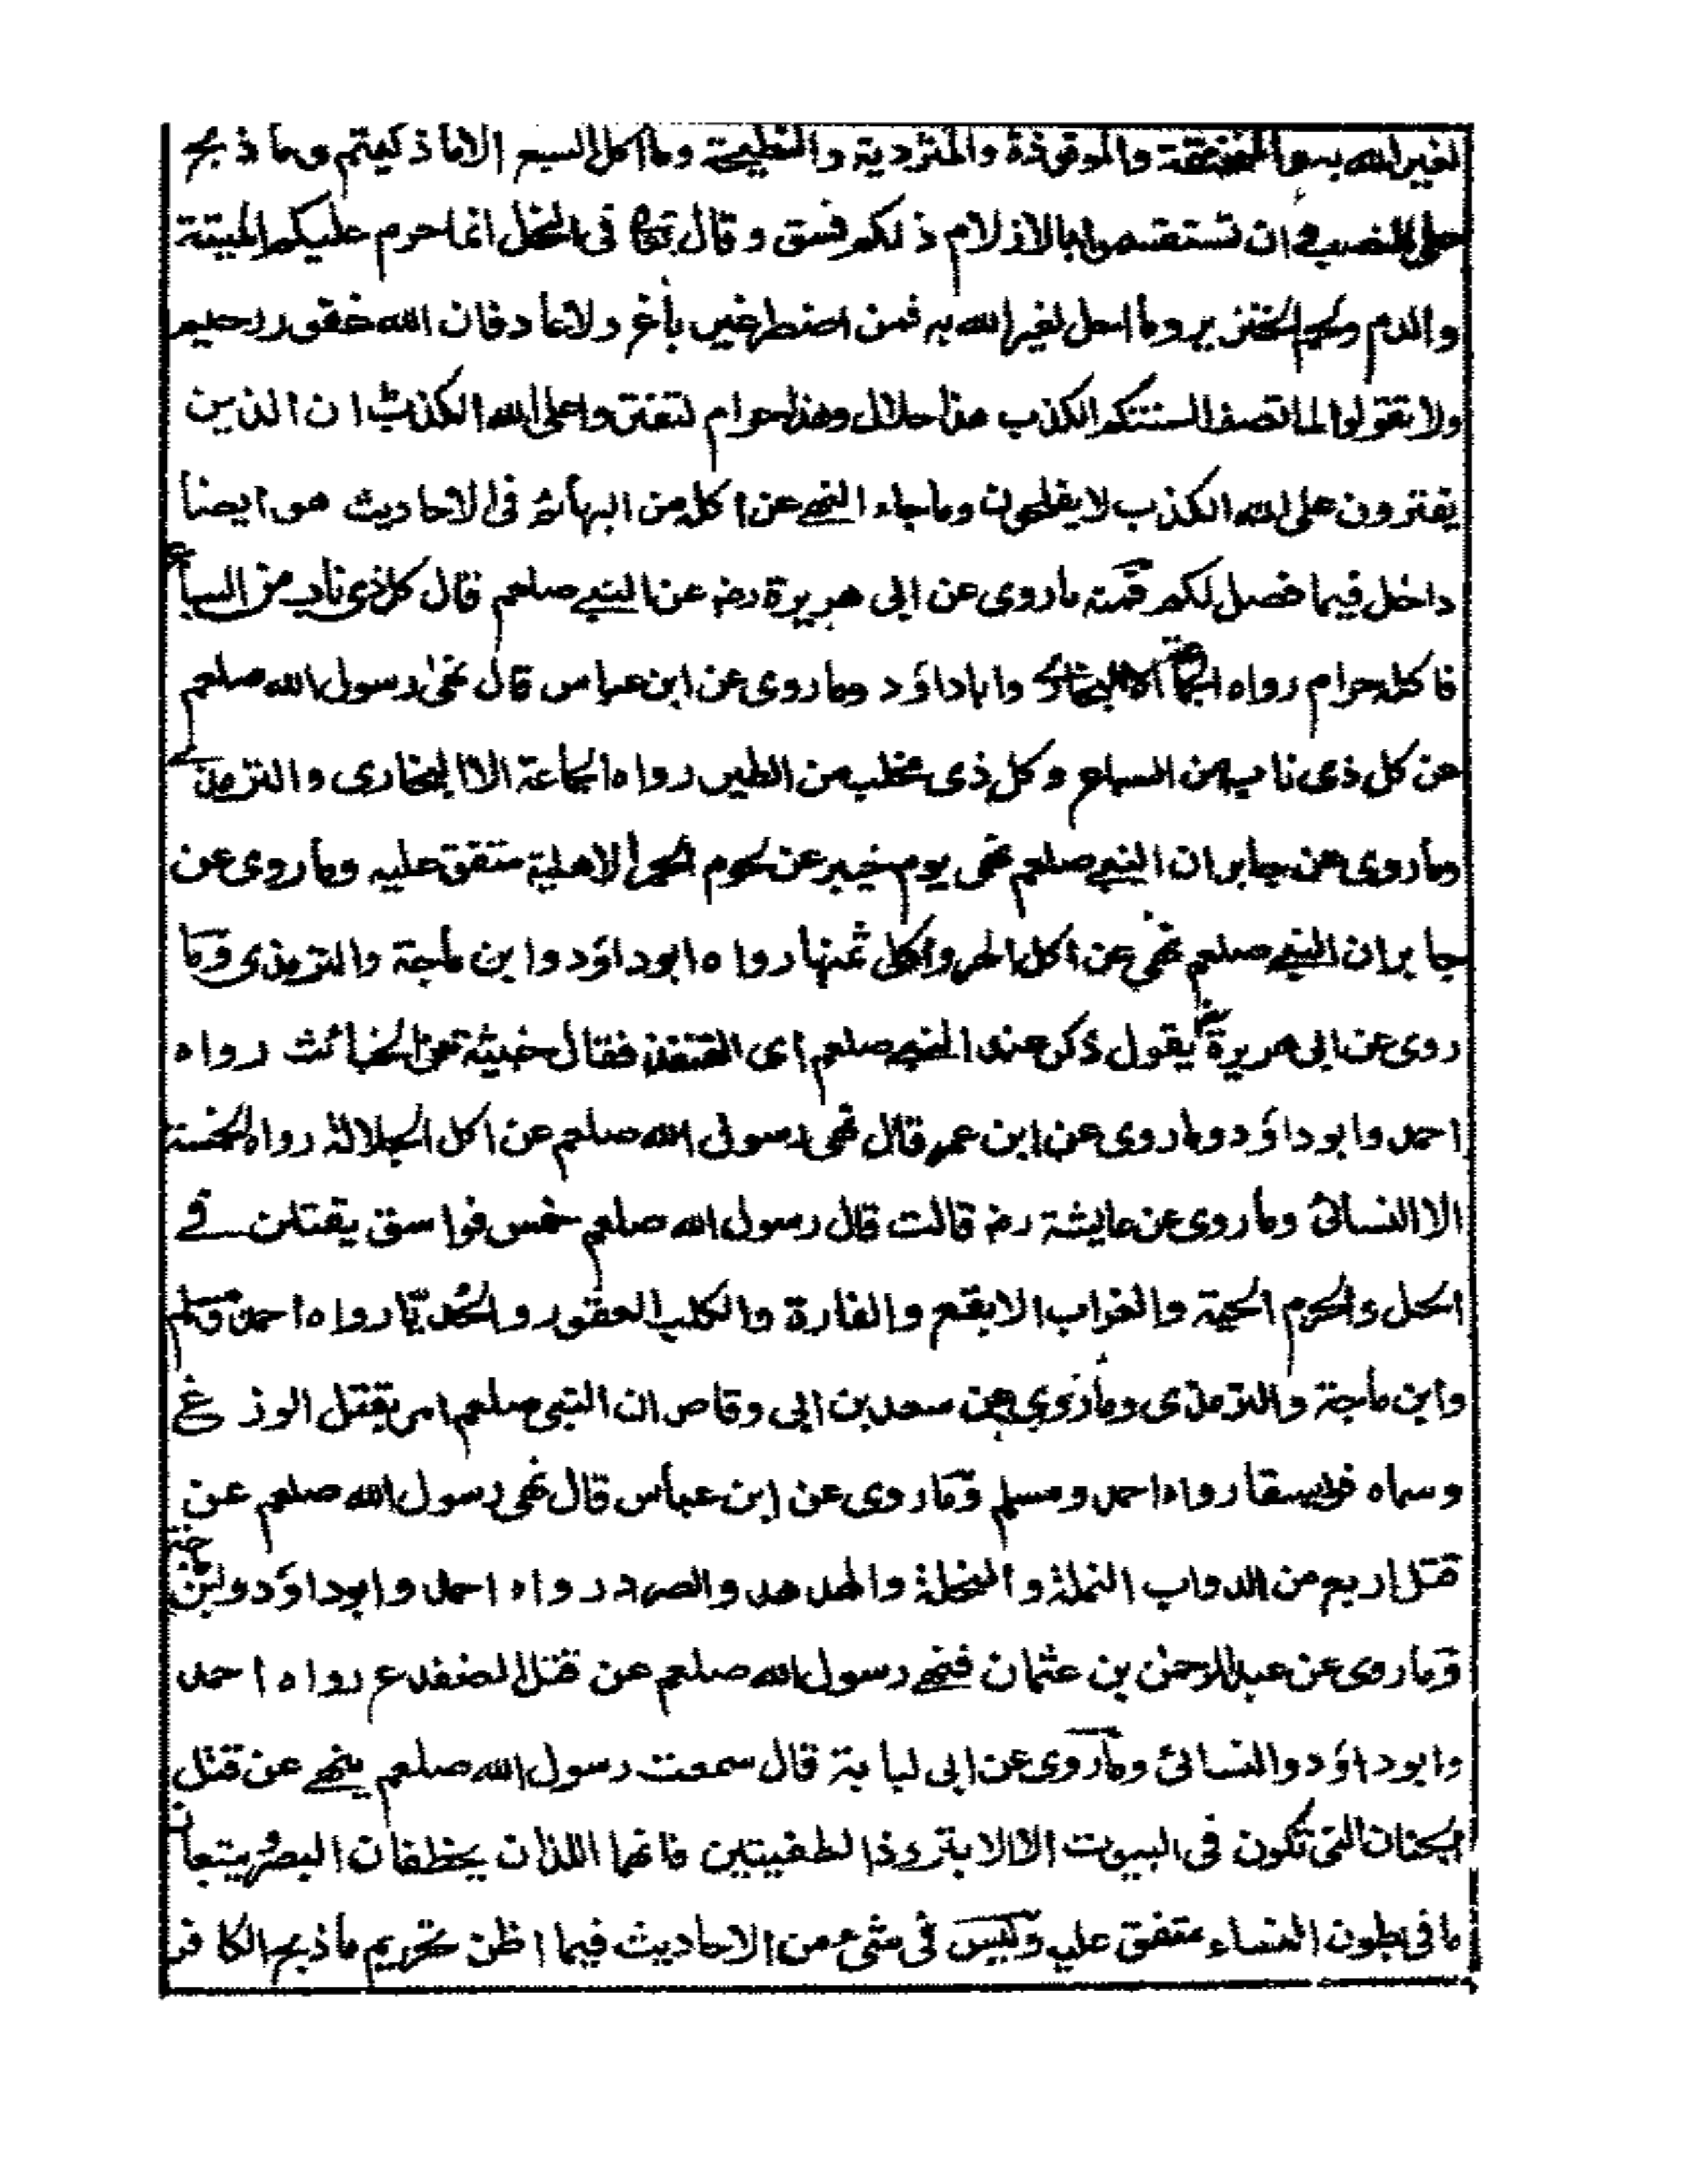 لغير الله به والمنخنقة والموقوذة والمتردية والنطيحة وما اكل السبع الا ما ذكيتم وما ذبح
على النصب وان تستقسموا بالازلام ذلكم فسق وقال تعالى فى النحل انما حرم عليكم الميتة
والدم ولحم الخنزير وما اهل لغير الله به فمن اضطر غير باغ ولا عاد فان الله غفور رحيم
ولا تقولوا لما تصف السنتكم الكذب هذا حلال وهذا حرام لتفتروا على الله الكذب ان الذين
يفترون على الله الكذب لا يفلحون وما جاء النهے عن اكله من البهائم فى الاحاديث هو ايضا
داخل فيما فصل لكم فمنه ما روى عن ابى هريرة رضہ عن النبے صلعم قال كل ذى ناب من السباع
فاكله حرام رواه الجماعة الا البخارى وابا داؤد وما روى عن ابن عباس قال نهى رسول الله صلعم
عن كل ذى ناب من السباع وكل ذى مخلب من الطير رواه الجماعة الا البخارى والترمذے
وما روى عن جابر ان النبے صلعم نهى يوم خيبر عن لحوم الحمر الاهلية متفق عليه وما روى عن
جابر ان النبے صلعم نهى عن اكل الهر واكل ثمنها رواه ابو داؤد وابن ماجة والترمذى وما
روى عن ابى هريرة يقول ذكر عند النبے صلعم اى القنفذ فقال خبيثة من الخبائث رواه
احمد وابو داؤد وما روى عن ابن عمر قال نهى رسول الله صلعم عن اكل الجلالة رواه الخمسة
الا النسائى وما روى عن عايشة رضہ قالت قال رسول الله صلعم خمس فواسق يقتلن فے
الحل والحرم الحية والغراب الابقع والفارة والكلب العقور والحُدَيّا رواه احمد ومسلم
وابن ماجة والترمذى وما روي عن سعد بن ابى وقاص ان النبى صلعم امر بقتل الوزغ
وسماه فويسقا رواه احمد ومسلم وما روى عن ابن عباس قال نهى رسول الله صلعم عن
قتل اربع من الدواب النملة والنحلة والهدهد والصرد رواه احمد وابو داؤد وابن ماجة
وما روى عن عبد الرحمٰن بن عثمان فنهے رسول الله صلعم عن قتل الضفدع رواه احمد
وابو داؤد والنسائى وما روى عن ابى لبابة قال سمعت رسول الله صلعم ينهے عن قتل
الجنان التى تكون فى البيوت الا الابتر وذا الطفيتين فانهما اللذان يخطفان البصر ويتبعان
ما فى بطون النساء متفق عليه وليس فى شىء من الاحاديث فيما اظن تحريم ما ذبح الكافر